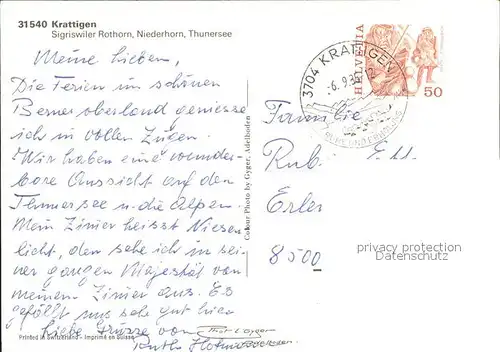 31540 Krattigen
Sigriswiler Rothorn, Niederhorn, Thunersee
Meine Lieben,
Die Ferien im schönen
Berner oberland geniesse
ich in vollen Zügen.
Wir haben eine wunder-
bare Aussicht auf den
Thunersee u. die Alpen.
Mein Zimer heisst Niesen
licht, den sehe ich in sei-
ner ganzen Majestät von
meinem Zimer aus. Es
gefällt uns sehr gut hier
Liebe Grüsse von
Ruth
Printed in Switzerland - Imprimé en Suisse
Colour Photo by Gyger, Adelboden
3704 KRATTIGEN
HELVETIA
50
Familie
Rub.
Erler
8500
privacy protection
Datenschutz